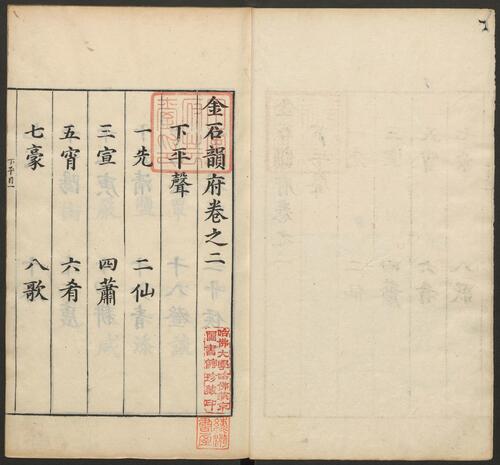 金石韻府卷之二
下平聲
一先 二仙
三宣 四蕭
五宵 六肴
七豪 八歌
哈佛大學哈佛燕京
圖書館珍藏印